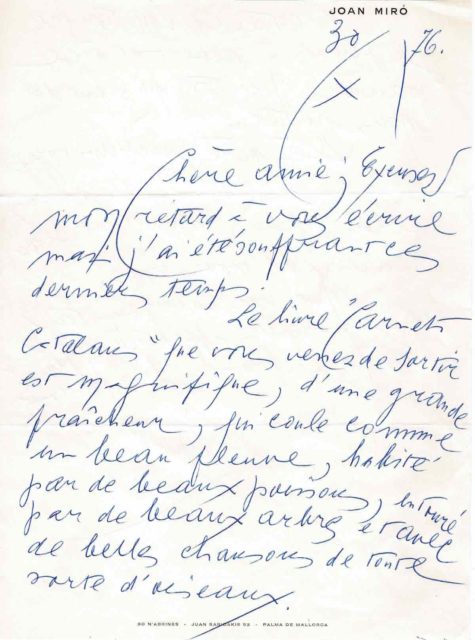 JOAN MIRÓ
30 X 76.
Chère amie; Excusez
mon retard à vous écrire
mais j'ai été souffrant ces
derniers temps.
Le livre "Carnets
Catalans" que vous venez de sortir
est magnifique, d'une grande
fraîcheur, qui coule comme
un beau fleuve, habité
par de beaux poissons, entouré
par de beaux arbres et avec
de belles chansons de toute
sorte d'oiseaux.
SO N'ABRINES - JUAN SARIDAKIS 52 - PALMA DE MALLORCA